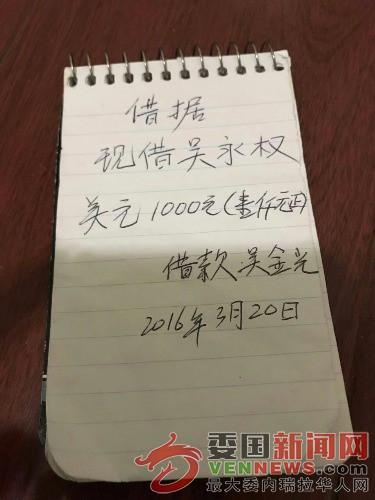 借据
现借吴永权
美元1000元(壹仟元正)
借款吴金光
2016年3月20日
委国新闻网
VENNEWS.COM
最大委内瑞拉华人网